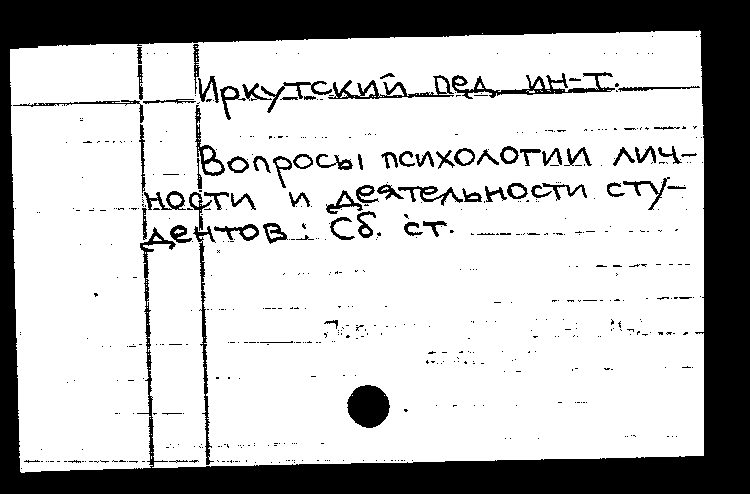 Иркутский пед. ин-т.
Вопросы психологии лич-
ности и деятельности сту-
дентов: Сб. ст.